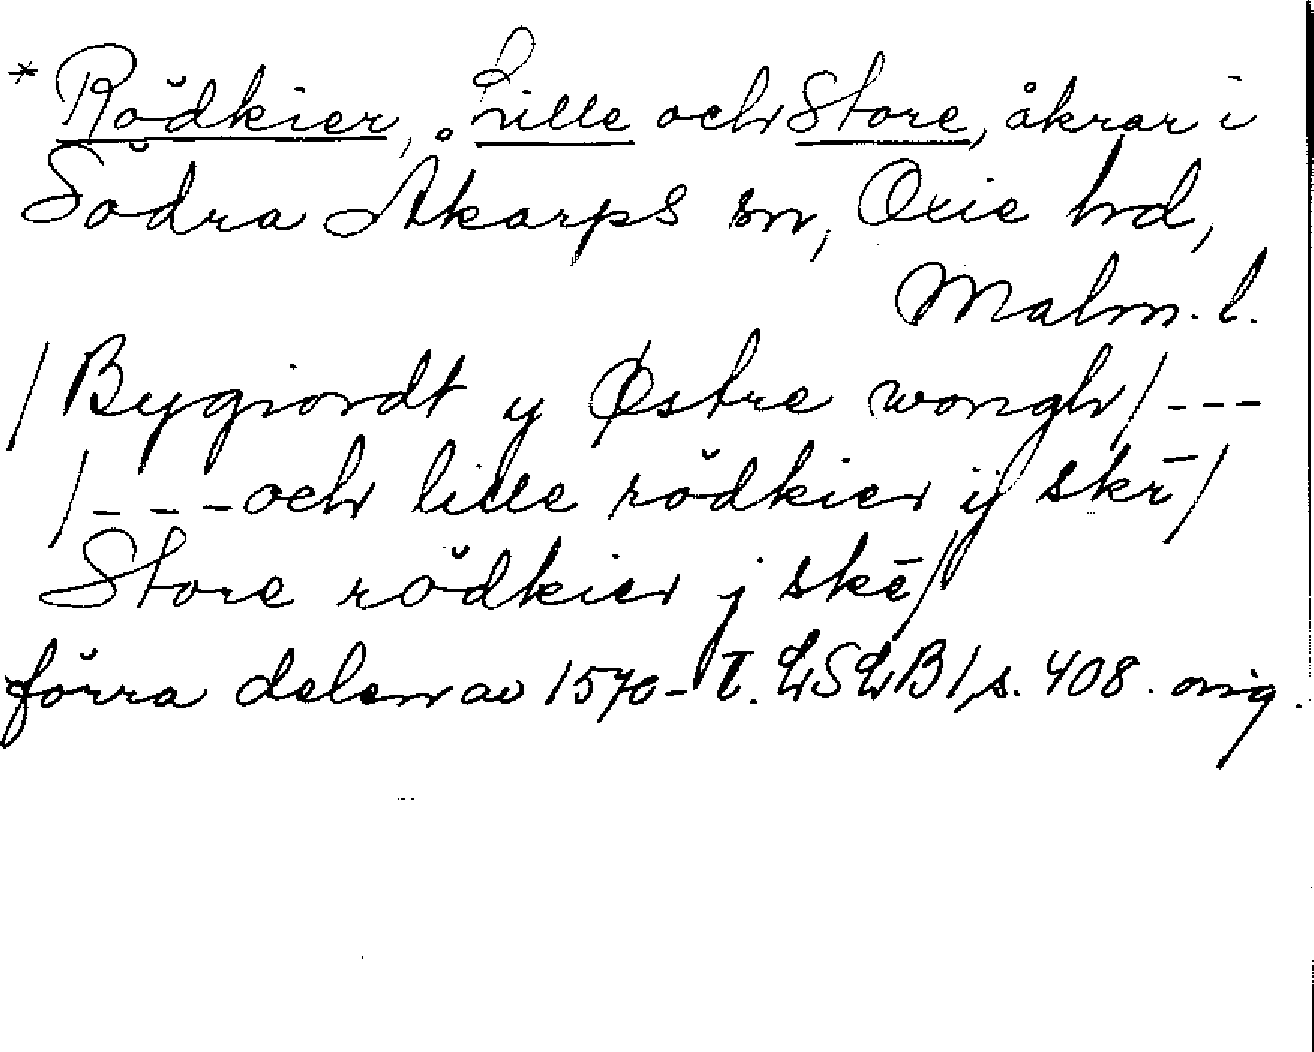 * Rödkier, Lille och Store, åkrar i
Södra Åkarps sn, Oxie hd,
Malm. l.
/Bygiordt y Østre wongh/ ---
/---och lille rödkier ij skē/
Store rödkier j skē/
förra delen av 1570-t. LSLB 1, s. 408. orig.